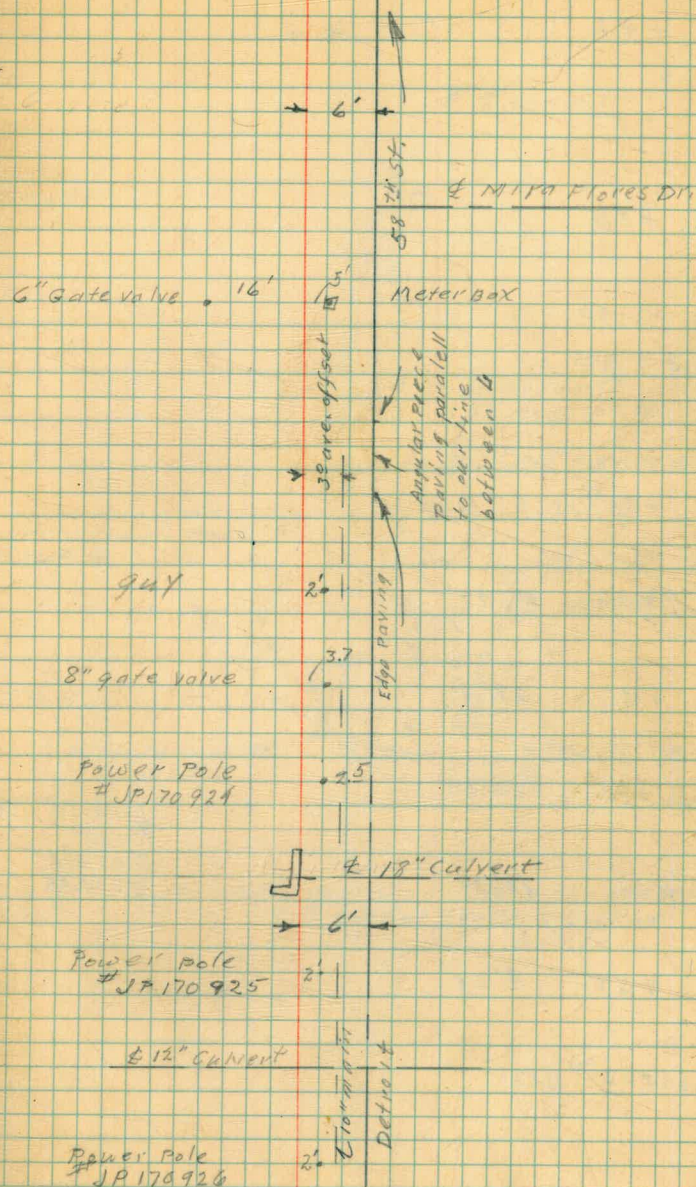 6'
58 TH St.
℄ Mira Flores Dri
6" Gate valve
16'
5'
Meter Box
3.0 ave. offset
Angular piece
paving paralell
to our line
between
guy
2'
Edge Paving
8" gate valve
3.7
Power Pole
# JP170924
2.5
℄ 18" Culvert
6'
Power pole
# JP170925
2'
℄ 12" Culvert
10" main
Detroit
Power Pole
# JP170926
2'